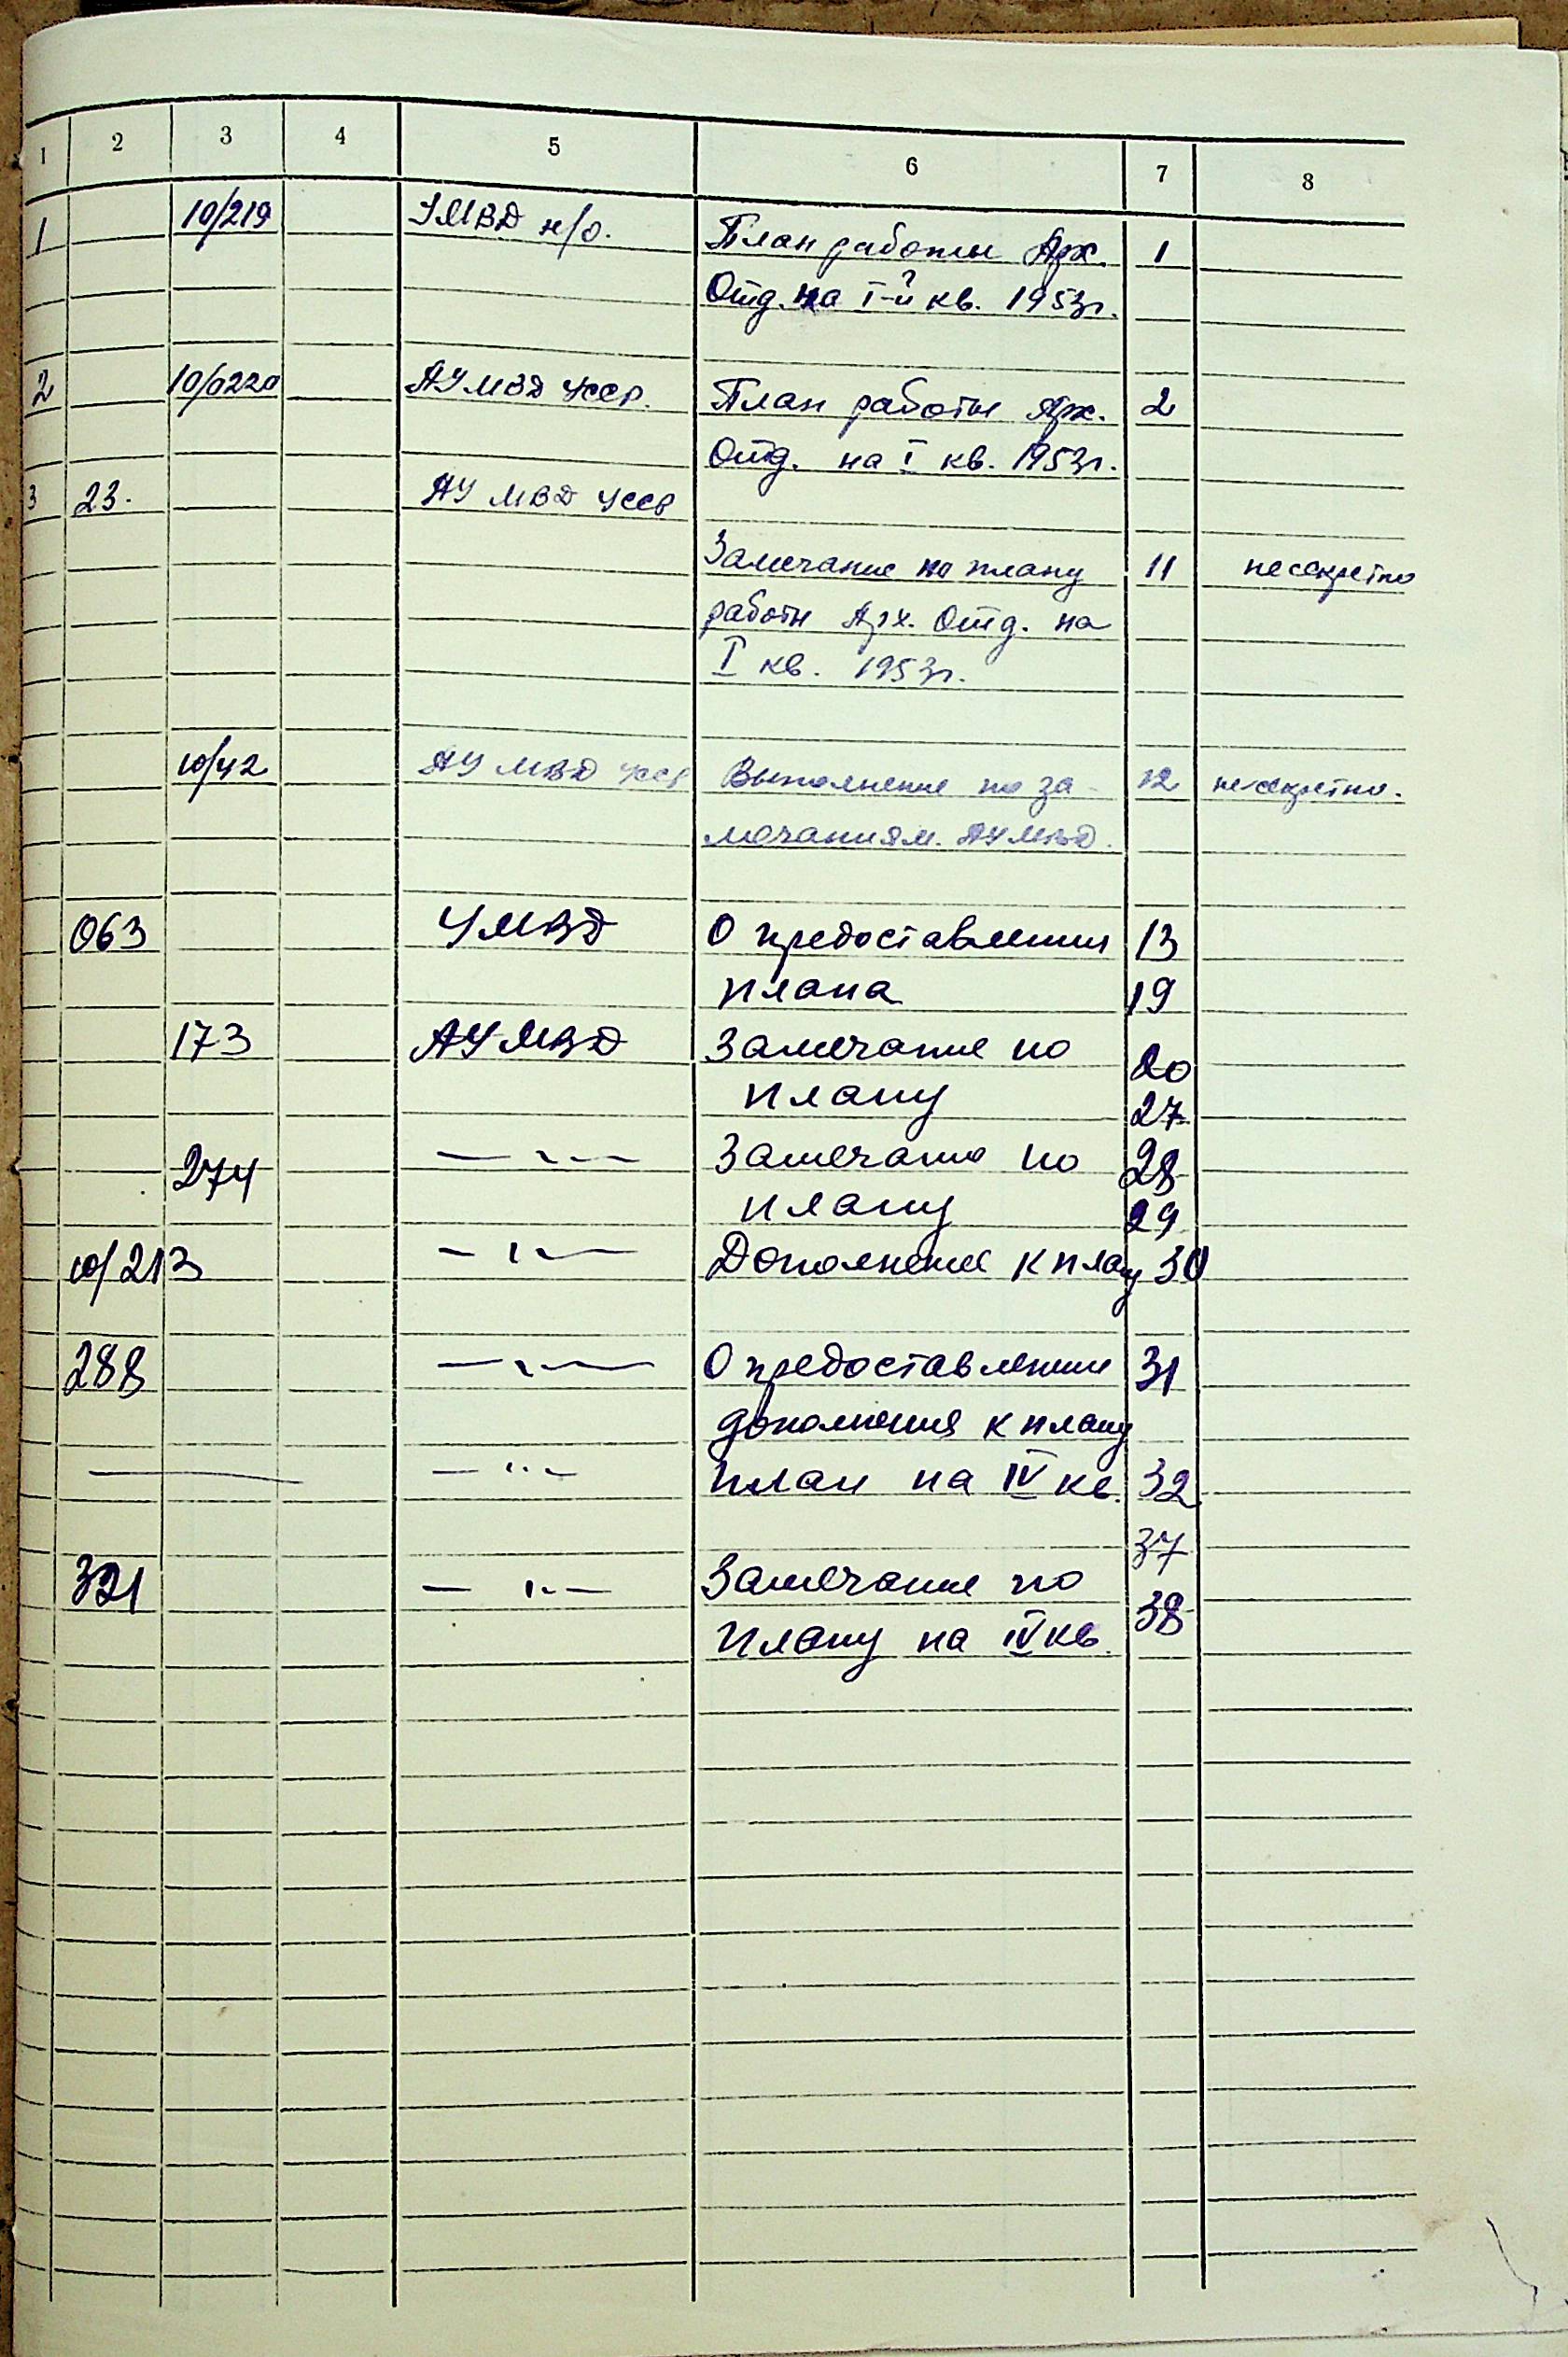 1 2 3 4 5 6 7 8
1 10/219 УМВД н/о. План работы Арх. 1
Отд. на I-й кв. 1953г.
2 10/0220 АУМВД УССР. План работы Арх. 2
Отд. на I кв. 1953г.
3 23. АУ МВД УССР
Замечание по плану 11 несекретно
работы Арх. Отд. на
I кв. 1953г.
10/42 АУ МВД УССР Выполнение по за- 12 несекретно.
мечаниям. АУМВД.
063 УМВД О предоставлении 13
плана 19
173 АУМВД Замечание по 20
плану 27
274 —〃 — Замечание по 28
плану 29
10/213 — 〃 — Дополнение к плану 30
288 — 〃 — О предоставлении 31
дополнения к плану
— — 〃 — План на IV кв. 32
37
321 — 〃 — Замечание по 38
плану на IV кв.